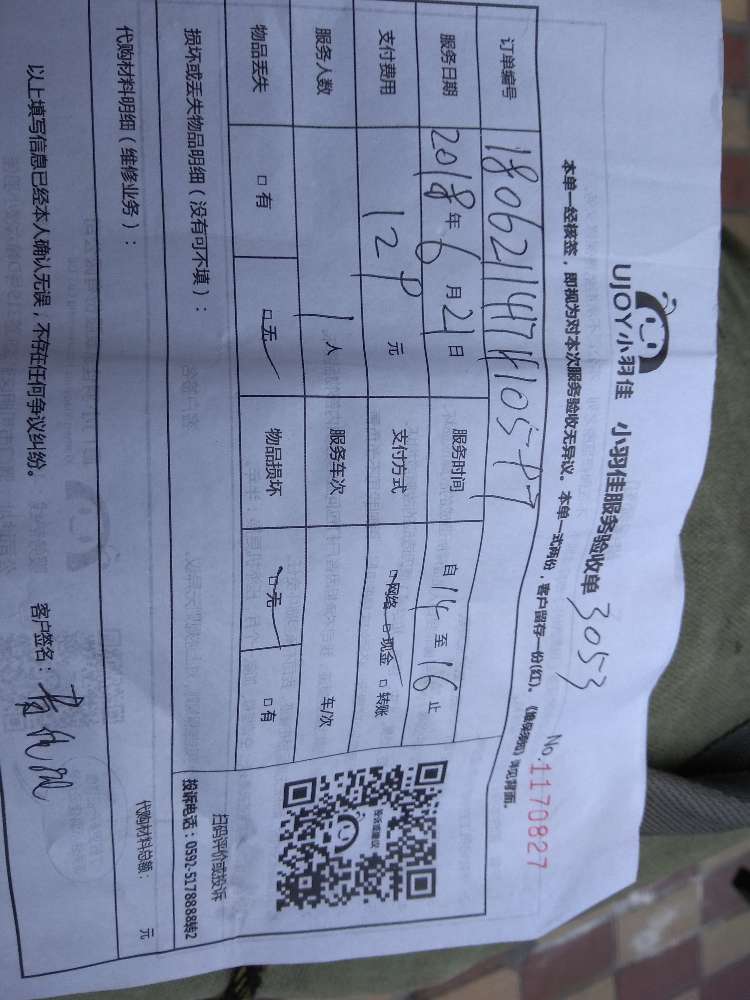 UJOY小羽佳 小羽佳服务验收单 3053
No.1170827
本单一经核签，即视为对本次服务验收无异议。本单一式两份，客户留存一份(红)。《维保须知》详见背面。
订单编号
服务日期 2018年6月21日 服务时间 自14至16止
支付费用 129元 支付方式 □网络 □现金 □转账
服务人数 1人 服务车次 车/次
物品丢失 □有 □无 物品损坏 □无 □有
损坏或丢失物品明细（没有可不填）：
扫码评价或投诉
投诉电话：0592-5178888转2
代购材料明细（维修业务）：
代购材料总额： 元
以上填写信息已经本人确认无误，不存在任何争议纠纷。 客户签名：